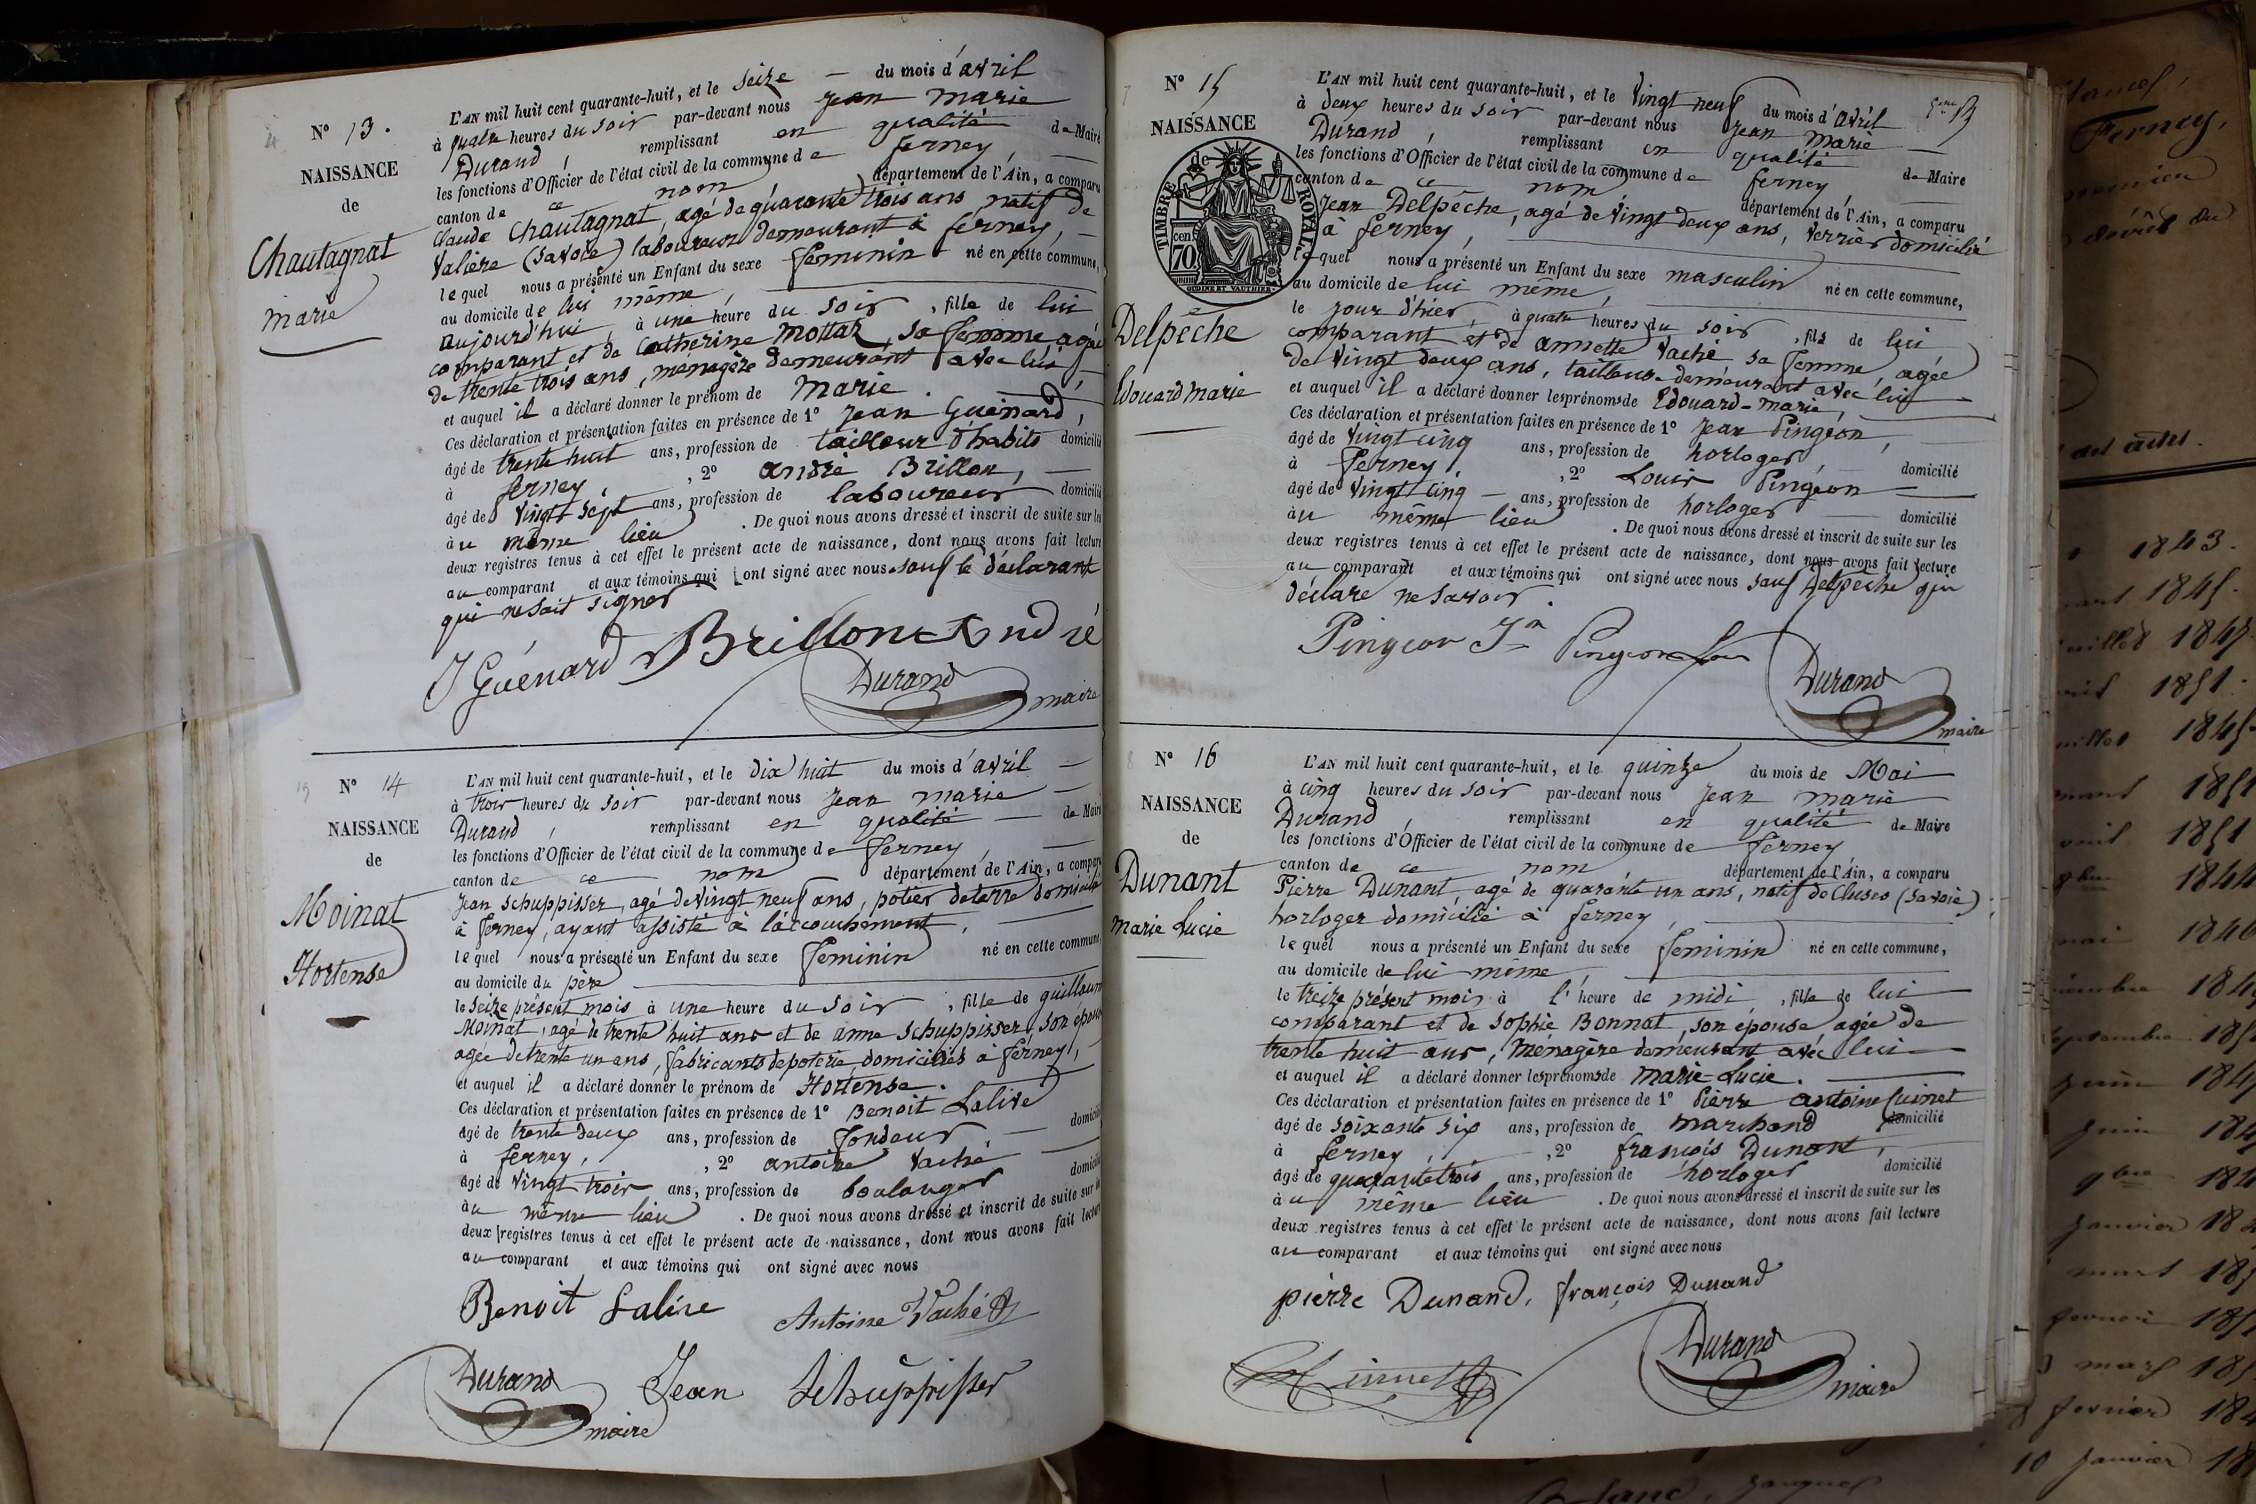 N° 13.
NAISSANCE
de
Chautagnat
marie
L'AN mil huit cent quarante-huit, et le seize du mois d'avril
à quatre heures du soir par-devant nous jean marie
Durand, remplissant en qualité de Maire
les fonctions d'Officier de l'état civil de la commune de ferney,
canton de ce nom département de l'Ain, a comparu
Claude Chautagnat, agé de quarante trois ans natif de
Valière (Savoie) laboureur demeurant à ferney,
lequel nous a présenté un Enfant du sexe feminin né en cette commune,
au domicile de lui même,
aujourd'hui, à une heure du soir, fille de lui
comparant et de Catherine Mottaz, sa femme agée
de trente trois ans, ménagère demeurant avec lui,
et auquel il a déclaré donner le prénom de Marie.
Ces déclaration et présentation faites en présence de 1° Jean Guénard,
âgé de trente huit ans, profession de tailleur d'habits domicilié
à ferney, , 2° andré Brillon,
âgé de vingt sept ans, profession de laboureur domicilié
au même lieu . De quoi nous avons dressé et inscrit de suite sur les
deux registres tenus à cet effet le présent acte de naissance, dont nous avons fait lecture
au comparant et aux témoins qui ont signé avec nous sauf le déclarant
qui ne sait signer
J Guénard Brillon André
Durand
maire
N° 14
NAISSANCE
de
Moinat
Hortense
L'AN mil huit cent quarante-huit, et le dix huit du mois d'avril
à trois heures du soir par-devant nous jean marie
Durand, remplissant en qualité de Maire
les fonctions d'Officier de l'état civil de la commune de ferney,
canton de ce nom département de l'Ain, a comparu
jean Schuppisser, agé de vingt neuf ans, potier de terre domicilié
à ferney, ayant assisté à l'accouchement,
lequel nous a présenté un Enfant du sexe feminin né en cette commune,
au domicile du père
le seize présent mois à une heure du soir, fille de guillaume
Moinat, agé de trente huit ans et de anne Schuppisser, son épouse
agée de trente un ans, fabricants de poterie, domiciliés à ferney,
et auquel il a déclaré donner le prénom de Hortense.
Ces déclaration et présentation faites en présence de 1° Benoit Lalive
âgé de trente deux ans, profession de fondeur, domicilié
à ferney, , 2° antoine Vaché
âgé de vingt trois ans, profession de boulanger domicilié
au même lieu . De quoi nous avons dressé et inscrit de suite sur les
deux registres tenus à cet effet le présent acte de naissance, dont nous avons fait lecture
au comparant et aux témoins qui ont signé avec nous
Benoit Lalive Antoine Vaché
Durand Jean Schuppisser
maire
N° 15
NAISSANCE
de
TIMBRE ROYAL.
70 cen.
OUDINE ET VAUTHIER
Delpêche
Edouard marie
L'AN mil huit cent quarante-huit, et le vingt neuf du mois d'avril
à deux heures du soir par-devant nous Jean Marie
Durand, remplissant en qualité de Maire
les fonctions d'Officier de l'état civil de la commune de ferney,
canton de ce nom département de l'Ain, a comparu
Jean Delpêche, agé de vingt deux ans, verrier domicilié
à ferney,
lequel nous a présenté un Enfant du sexe masculin né en cette commune,
au domicile de lui même,
le jour d'hier, à quatre heures du soir, fils de lui
comparant et de annette Vaché sa femme, agée
de vingt deux ans, tailleuse demeurant avec lui
et auquel il a déclaré donner les prénoms de Edouard-marie,
Ces déclaration et présentation faites en présence de 1° Jean Pingeon,
âgé de vingt cinq ans, profession de horloger, domicilié
à ferney, , 2° Louis Pingeon
âgé de vingt cinq ans, profession de horloger domicilié
au même lieu . De quoi nous avons dressé et inscrit de suite sur les
deux registres tenus à cet effet le présent acte de naissance, dont nous avons fait lecture
au comparant et aux témoins qui ont signé avec nous sauf Delpêche qui
déclare ne savoir.
Pingeon Jn Pingeon Lou
Durand
maire
N° 16
NAISSANCE
de
Dunant
marie Lucie
L'AN mil huit cent quarante-huit, et le quinze du mois de Mai
à cinq heures du soir par-devant nous Jean marie
Durand, remplissant en qualité de Maire
les fonctions d'Officier de l'état civil de la commune de ferney
canton de ce nom département de l'Ain, a comparu
Pierre Dunant, agé de quarante un ans, natif de Cluses (Savoie),
horloger domicilié à ferney,
lequel nous a présenté un Enfant du sexe feminin né en cette commune,
au domicile de lui même,
le treize présent mois à l'heure de midi, fille de lui
comparant et de Sophie Bonnat, son épouse agée de
trente huit ans, ménagère demeurant avec lui
et auquel il a déclaré donner les prénoms de marie-Lucie.
Ces déclaration et présentation faites en présence de 1° Pierre antoine Cuinet
âgé de soixante six ans, profession de marchand domicilié
à ferney , 2° françois Dunant,
âgé de quarante trois ans, profession de horloger domicilié
au même lieu . De quoi nous avons dressé et inscrit de suite sur les
deux registres tenus à cet effet le présent acte de naissance, dont nous avons fait lecture
au comparant et aux témoins qui ont signé avec nous
pierre Dunand, françois Dunand
Durand
maire
Ferney,
1843.
1845.
1851
1851
1851
1844
10 janvier